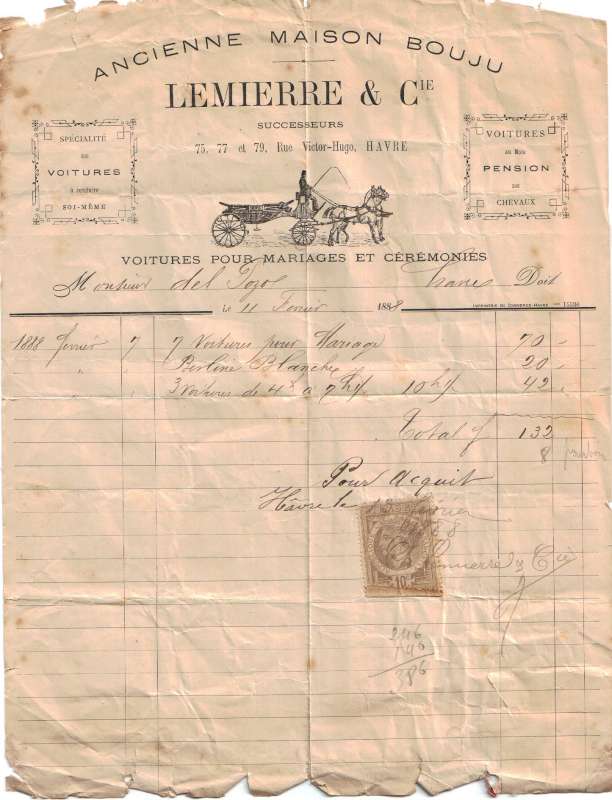 ANCIENNE MAISON BOUJU
LEMIERRE & CIE
SUCCESSEURS
75, 77 et 79, Rue Victor-Hugo, HAVRE
SPÉCIALITÉ
DE
VOITURES
à conduire
SOI-MÊME
VOITURES
au Mois
PENSION
DE
CHEVAUX
VOITURES POUR MARIAGES ET CÉRÉMONIES
Monsieur del Pozo Havre Doit
Le 11 Fevrier 1888
IMPRIMERIE DU COMMERCE-HAVRE
1888 fevrier 7 7 Voitures pour Mariage 70 -
" " Berline Blanche 20 -
" " 3 Voitures de 4h à 9h½ 10h½ 42 -
Total f 132
8
Pour Acquit
Hâvre le
Lemierre & Cie
10c
246
140
386